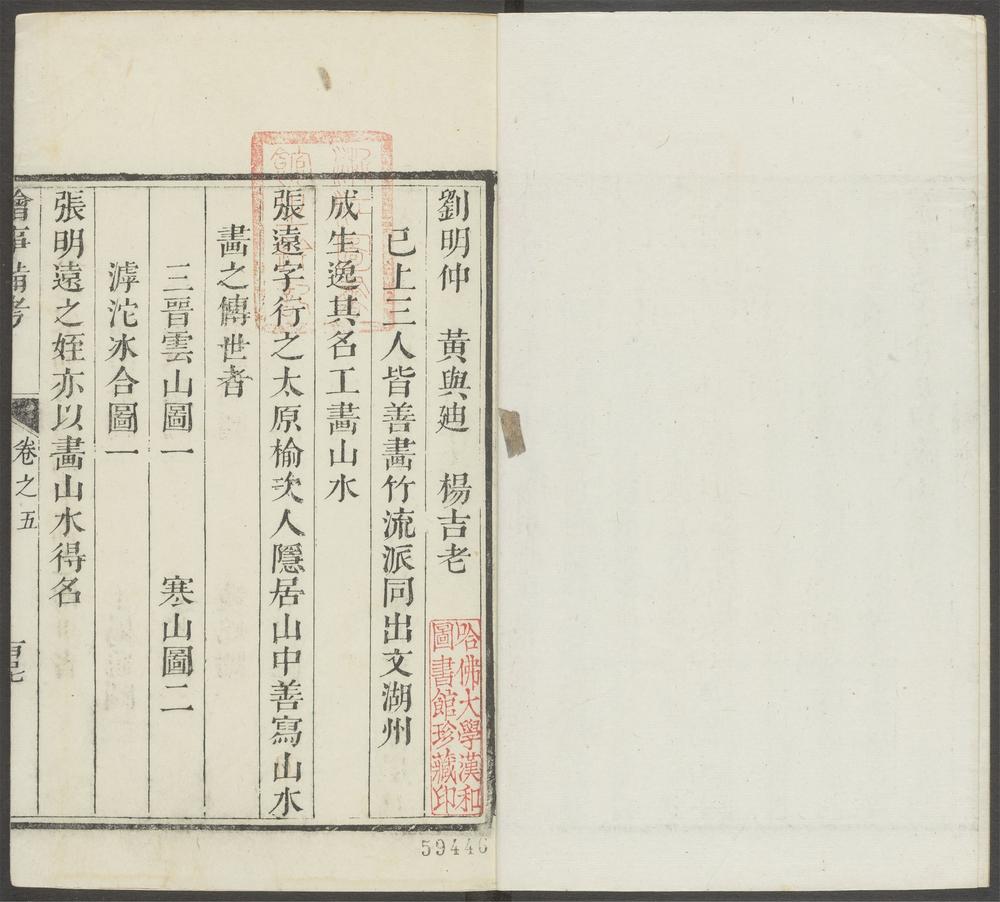 劉明仲 黃與廸 楊吉老
已上三人皆善畵竹流派同出文湖州
成生逸其名工畵山水
張遠字行之太原榆次人隱居山中善寫山水
畵之傳世者
三晉雲山圖一 寒山圖二
滹沱冰合圖一
張明遠之姪亦以畵山水得名
繪事備考
卷之五
哈佛大學漢和
圖書館珍藏印
59446